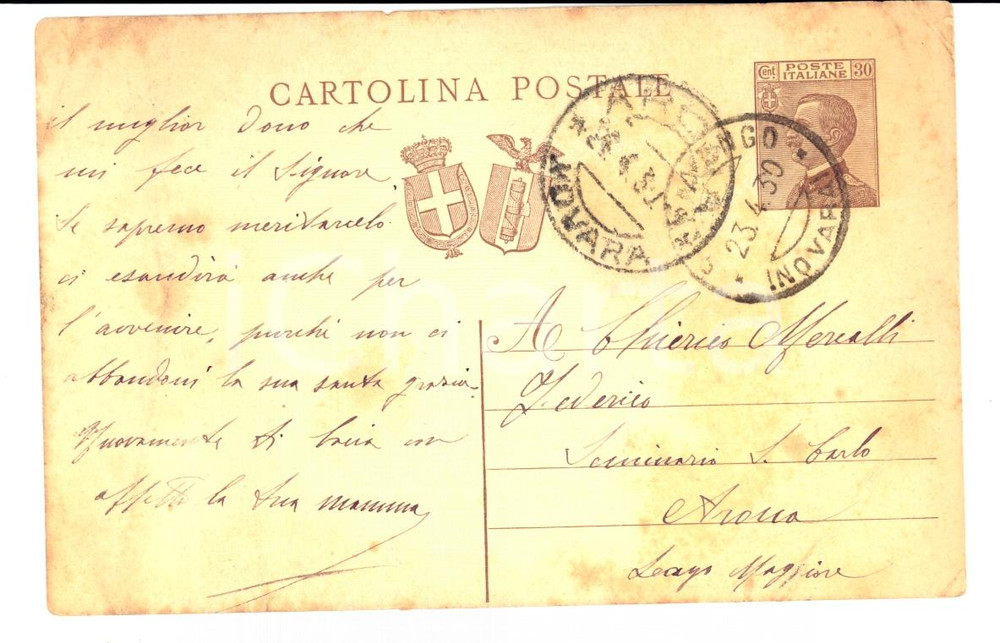 CARTOLINA POSTALE
Cent POSTE ITALIANE 30
ARONA
NOVARA
23.4.30
(NOVARA)
il miglior dono che
mi fece il Signore
Se sapremo meritarcelo
ci esaudirà anche per
l'avvenire, purché non ci
abbandoni la sua santa grazia.
Nuovamente ti bacia con
affetto la tua mamma
A Chierico Mercalli
Federico
Seminario S. Carlo
Arona
Lago Maggiore